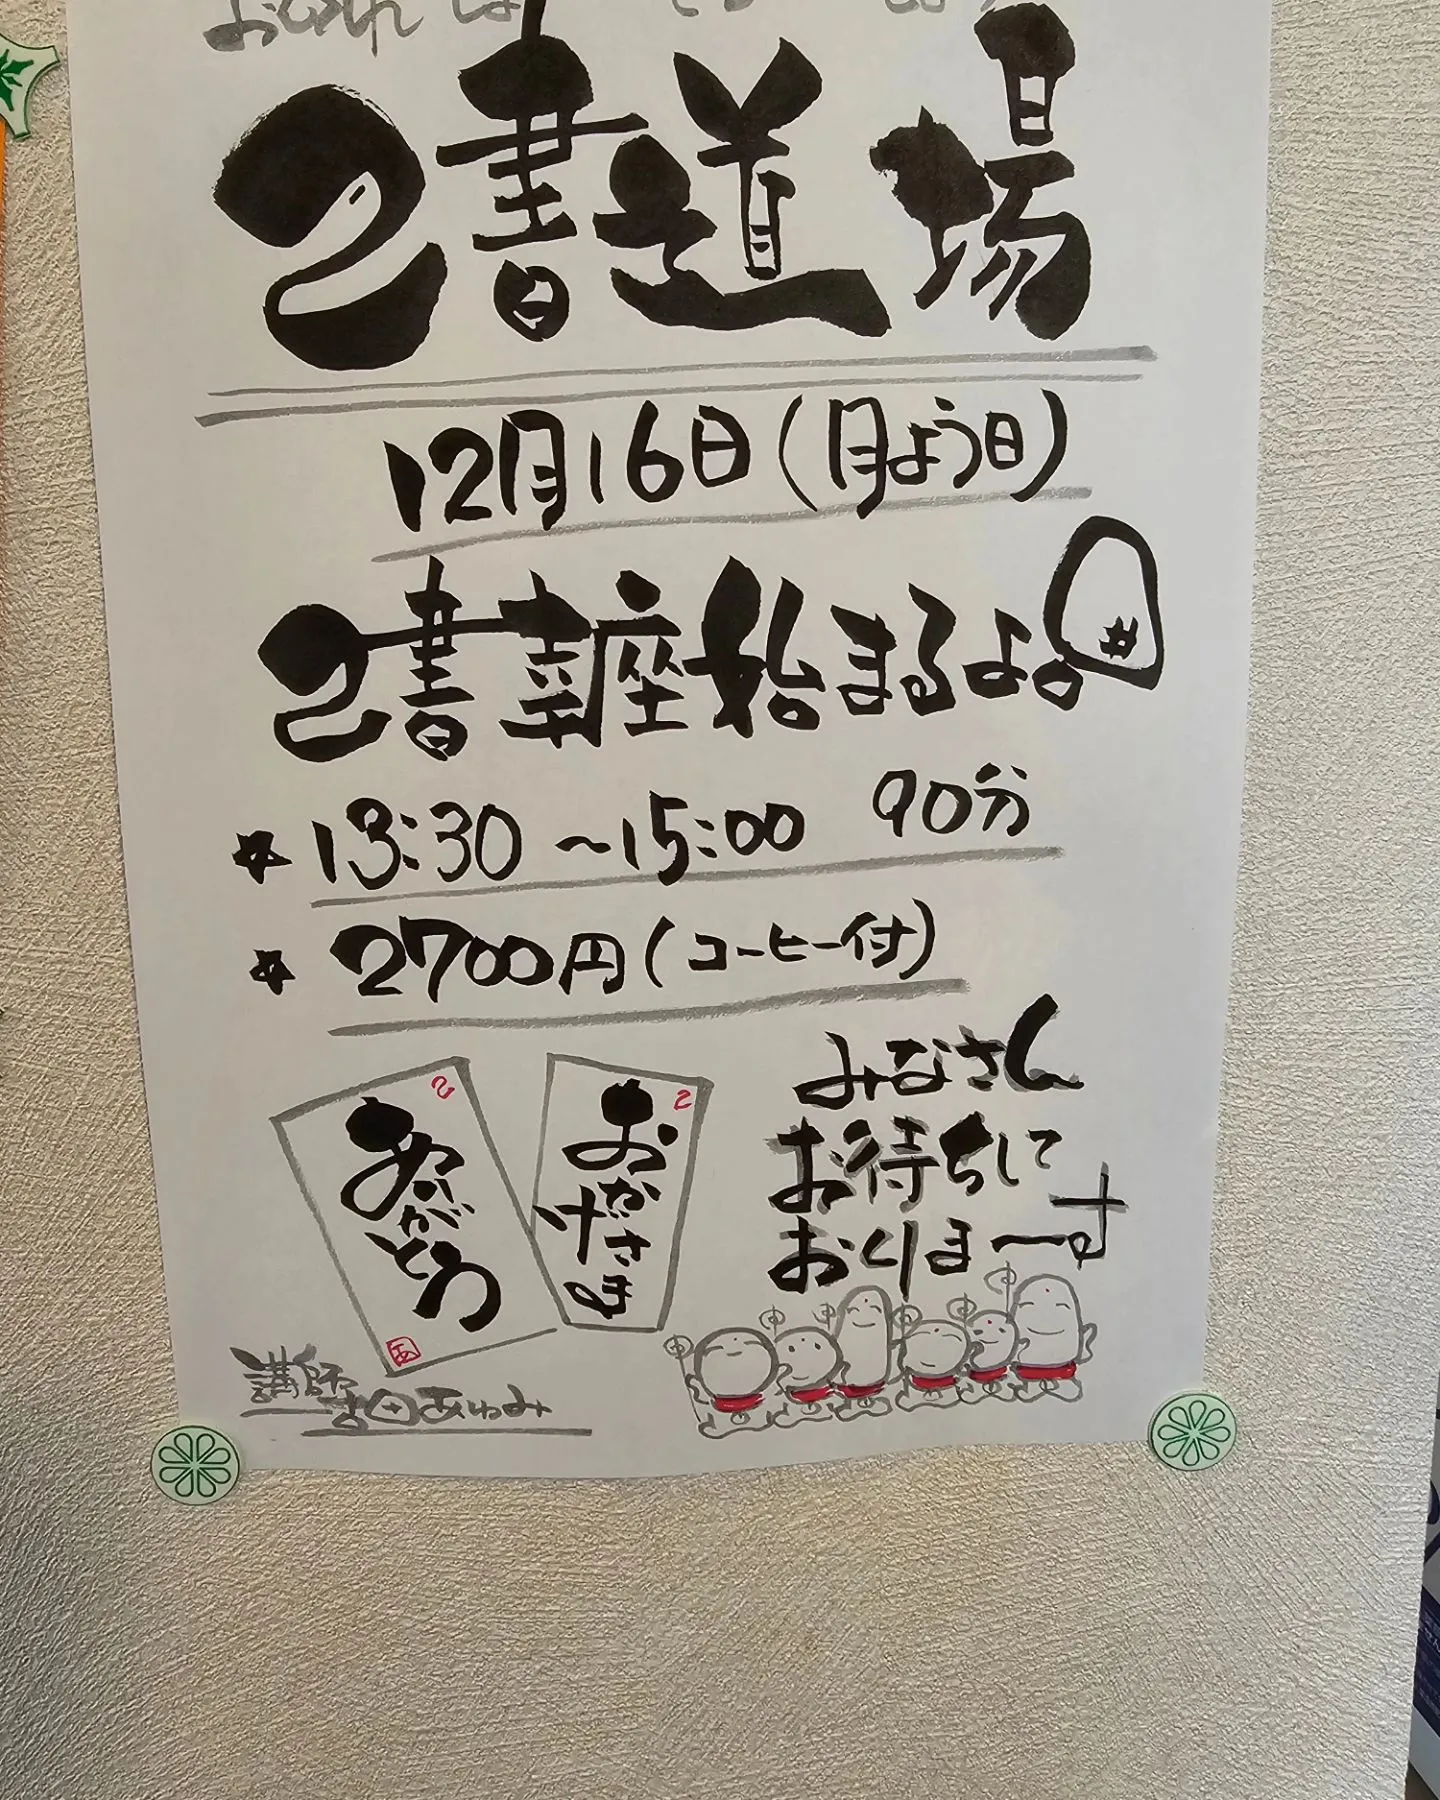 2書道場
12月16日(月よう日)
2書講座始まるよ。
★ 13:30~15:00 90分
★ 2700円(コーヒー付)
ありがとう
おかげさま
みなさん
お待ちして
おりま〜す
講師
吉田あゆみ